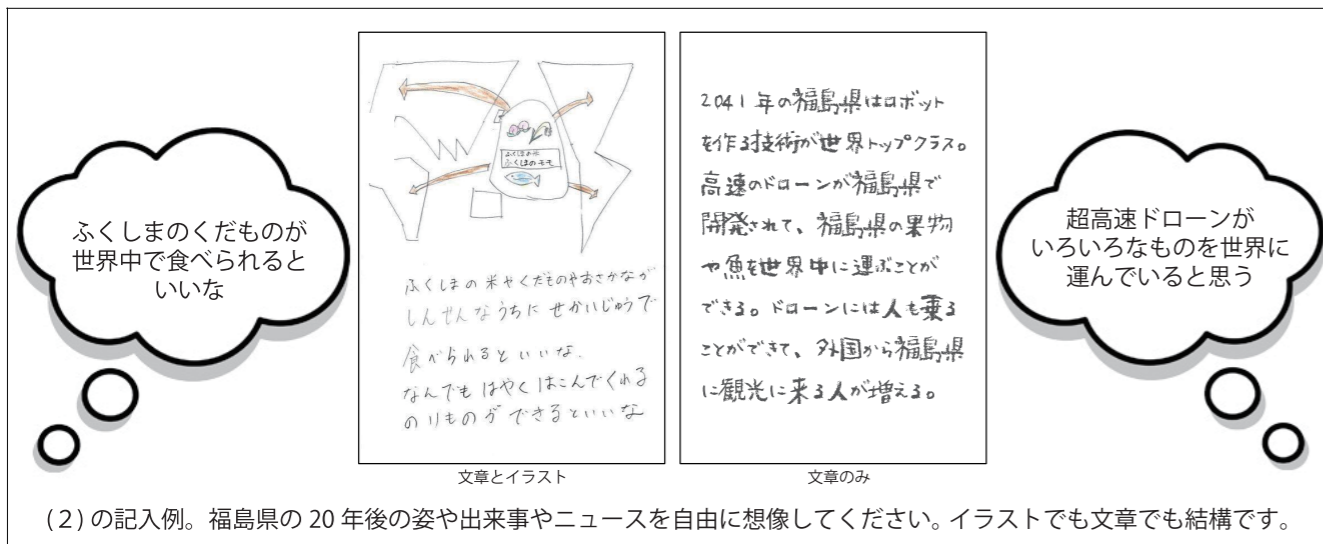 ふくしまのくだものが
世界中で食べられると
いいな
ふくしまの米
ふくしまのモモ
ふくしまの米やくだものやおさかなが
しんせんなうちに せかいじゅうで
食べられるといいな.
なんでも はやく はこんでくれる
のりものが できるといいな
文章とイラスト
2041年の福島県はロボット
を作る技術が世界トップクラス。
高速のドローンが福島県で
開発されて、福島県の果物
や魚を世界中に運ぶことが
できる。ドローンには人も乗る
ことができて、外国から福島県
に観光に来る人が増える。
文章のみ
超高速ドローンが
いろいろなものを世界に
運んでいると思う
(2)の記入例。福島県の20年後の姿や出来事やニュースを自由に想像してください。イラストでも文章でも結構です。